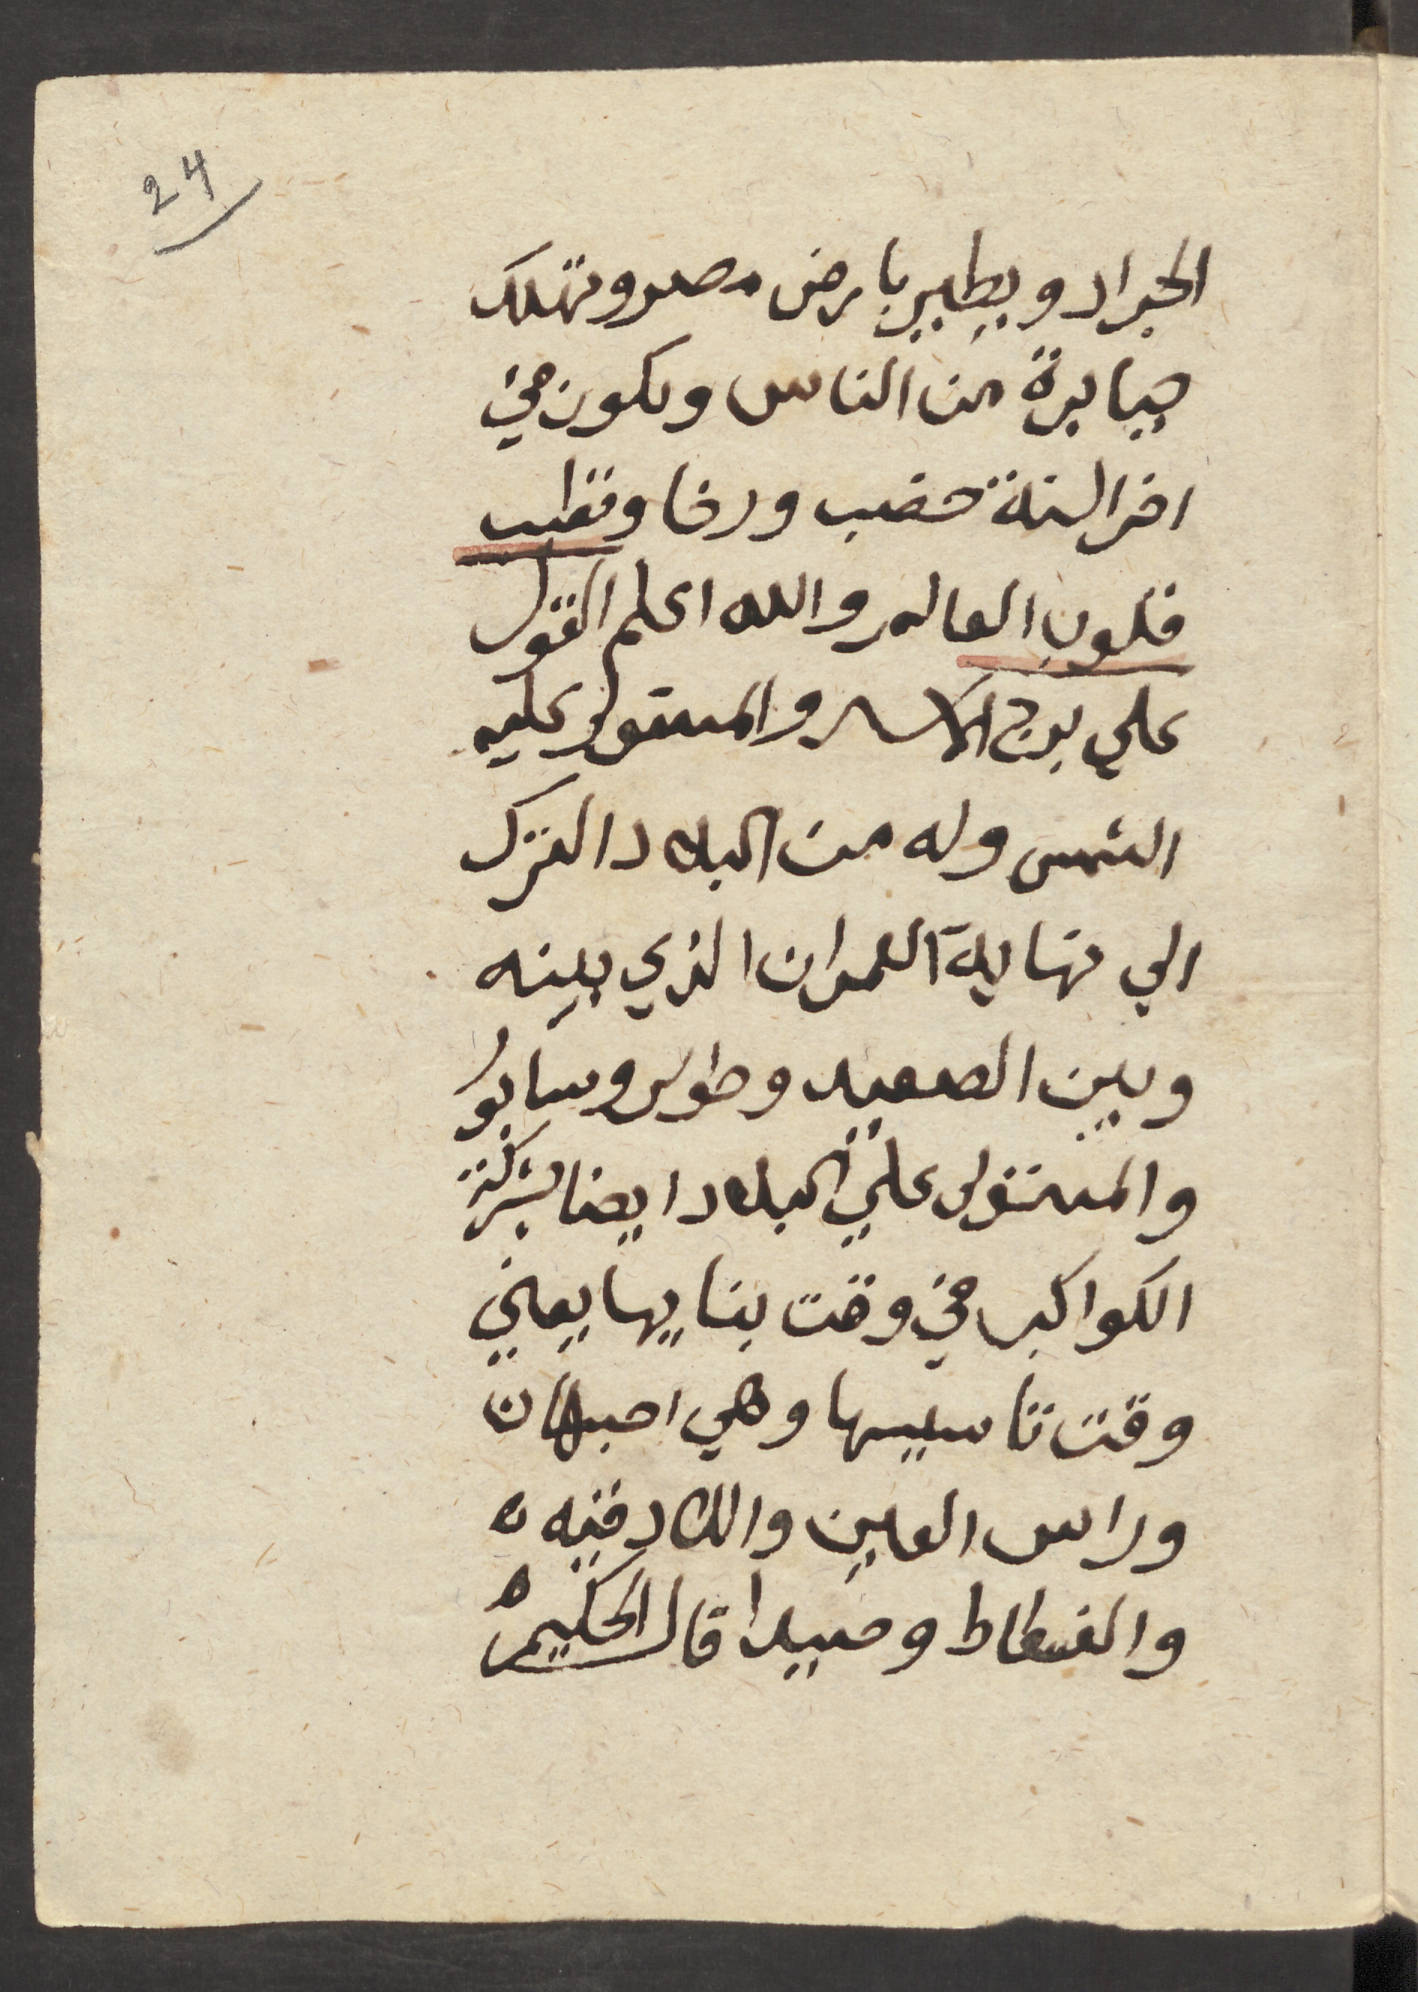 24
الجراد ويطير بارض مصر وتهلك
جبابرة من الناس ويكون في
اخر السنة خصب ورخا وتطيب
قلوب العالم والله اعلم القول
علي برج الاسد والمستولي عليه
الشمس وله من البلاد الترك
الي نهاية العمران الذي بينه
وبين الصعيد وطوس وسابور
والمستولي علي البلاد ايضا بشركة
الكواكب في وقت بنايها يعني
وقت تاسيسها وهي اصبهان
وراس العين واللادقيه ه
والفسطاط وصيدا قال الحكيم ه